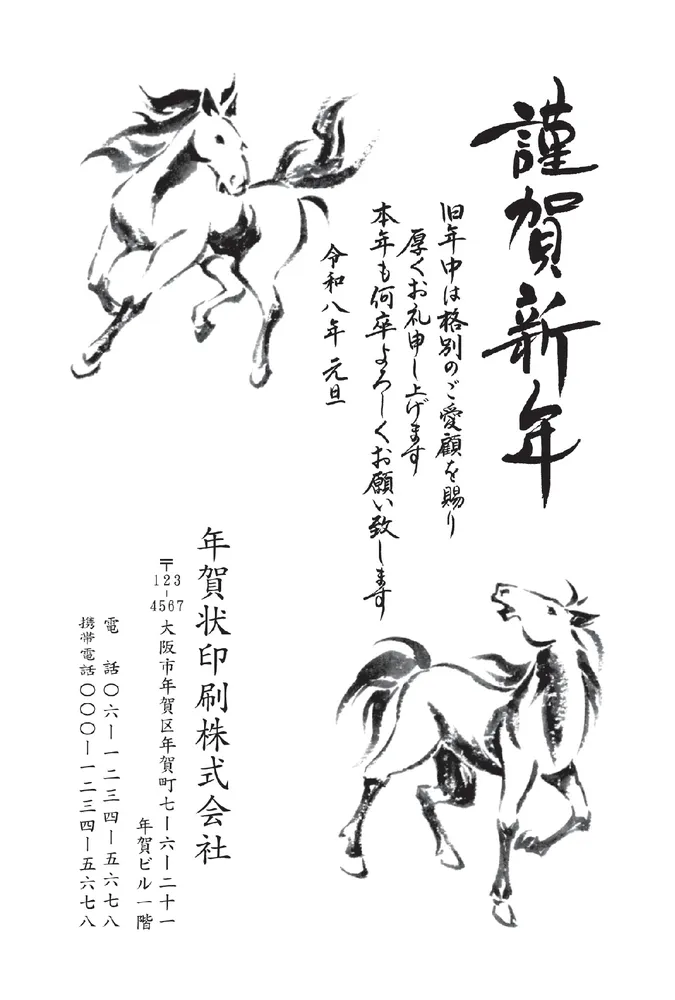 謹賀新年
旧年中は格別のご愛顧を賜り
厚くお礼申し上げます
本年も何卒よろしくお願い致します
令和八年 元旦
年賀状印刷株式会社
〒123-4567
大阪市年賀区年賀町七ー六ー二十一
年賀ビル一階
電 話〇六ー一二三四ー五六七八
携帯電話〇〇〇ー一二三四ー五六七八